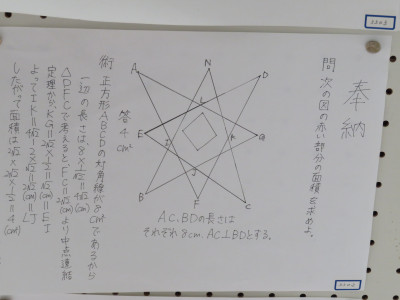 奉納
問 次の図の赤い部分の面積を求めよ。
A
N
D
E
L
G
I
K
J
B
F
C
AC、BDの長さは
それぞれ8cm、AC⊥BDとする。
答 4cm²
術 正方形ABCDの対角線が8cmであるから
一辺の長さは、8×1/√2=4√2(cm)
△DFCで考えるとFC=2√2(cm)より中点連結
定理から、KG=√2(cm)=EI
よってIK=4√2-2×√2=2√2(cm)=LJ
したがって面積は2√2×2√2×1/2=4(cm²)